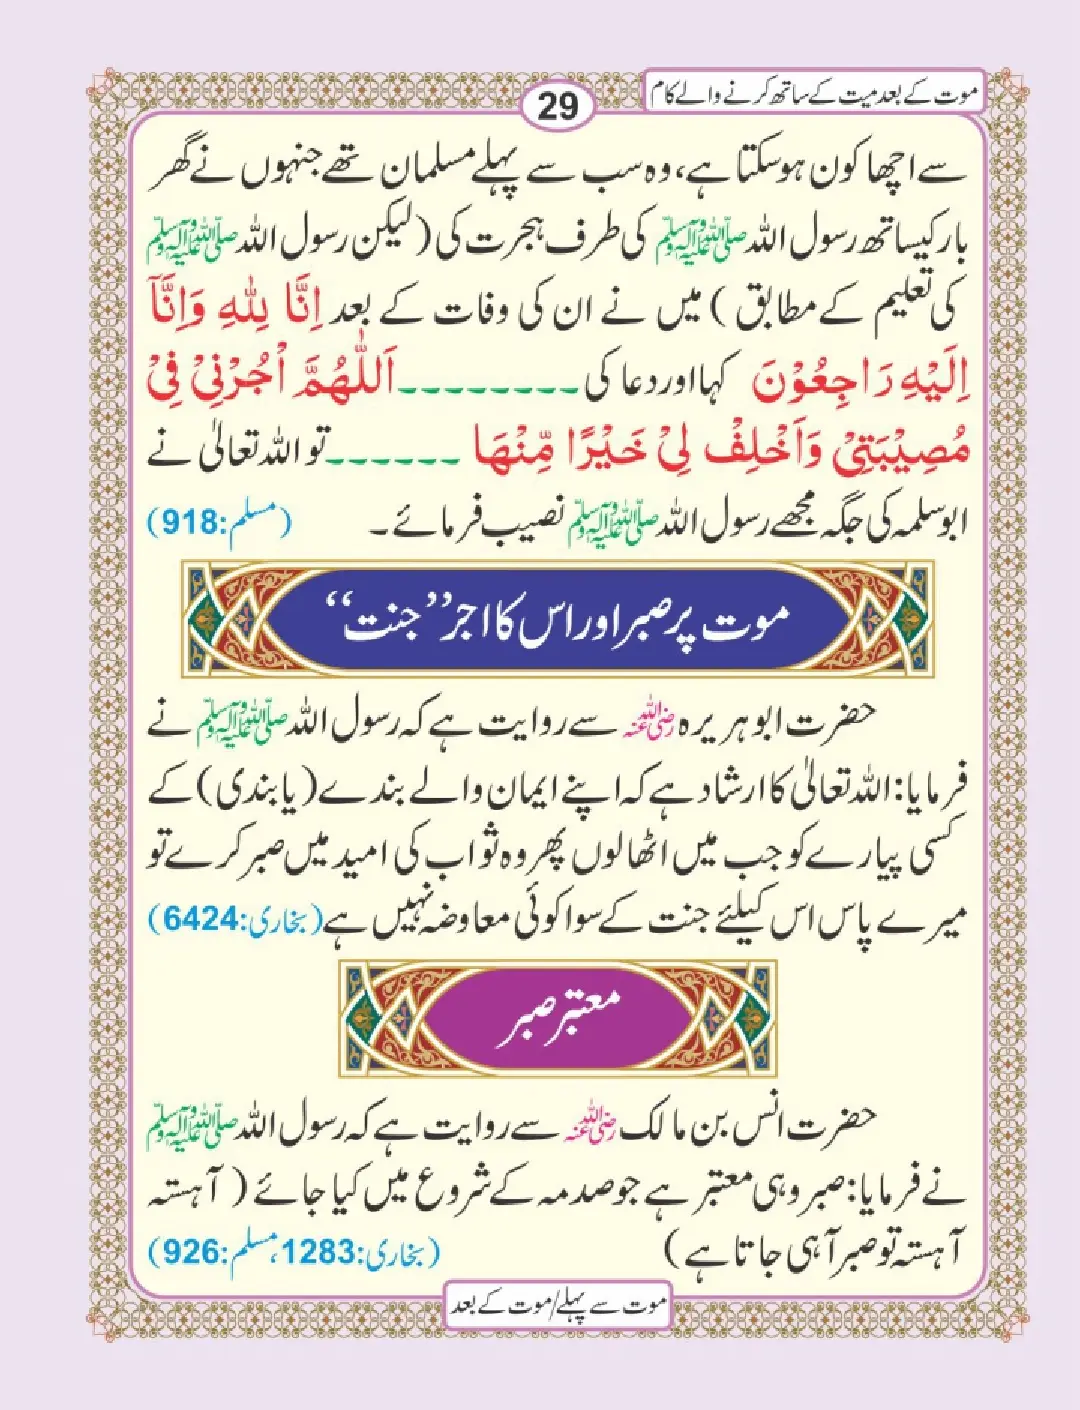 موت کے بعد میت کے ساتھ کرنے والے کام
29
سے اچھا کون ہوسکتا ہے، وہ سب سے پہلے مسلمان تھے جنہوں نے گھر
بار کیساتھ رسول اللہ ﷺ کی طرف ہجرت کی (لیکن رسول اللہ ﷺ
کی تعلیم کے مطابق) میں نے ان کی وفات کے بعد اِنَّا لِلّٰهِ وَاِنَّآ
اِلَيْهِ رَاجِعُوْنَ کہا اور دعا کی --------اَللّٰهُمَّ اْجُرْنِيْ فِيْ
مُصِيْبَتِيْ وَاَخْلِفْ لِيْ خَيْرًا مِّنْهَا ------تو اللہ تعالیٰ نے
ابوسلمہ کی جگہ مجھے رسول اللہ ﷺ نصیب فرمائے۔ (مسلم:918)
موت پر صبر اور اس کا اجر ”جنت“
حضرت ابو ہریرہ رضی اللہ عنہ سے روایت ہے کہ رسول اللہ ﷺ نے
فرمایا: اللہ تعالیٰ کا ارشاد ہے کہ اپنے ایمان والے بندے (یا بندی) کے
کسی پیارے کو جب میں اٹھا لوں پھر وہ ثواب کی امید میں صبر کرے تو
میرے پاس اس کیلئے جنت کے سوا کوئی معاوضہ نہیں ہے (بخاری:6424)
معتبر صبر
حضرت انس بن مالک رضی اللہ عنہ سے روایت ہے کہ رسول اللہ ﷺ
نے فرمایا: صبر وہی معتبر ہے جو صدمہ کے شروع میں کیا جائے (آہستہ
آہستہ تو صبر آ ہی جاتا ہے) (بخاری:1283، مسلم:926)
موت سے پہلے/موت کے بعد